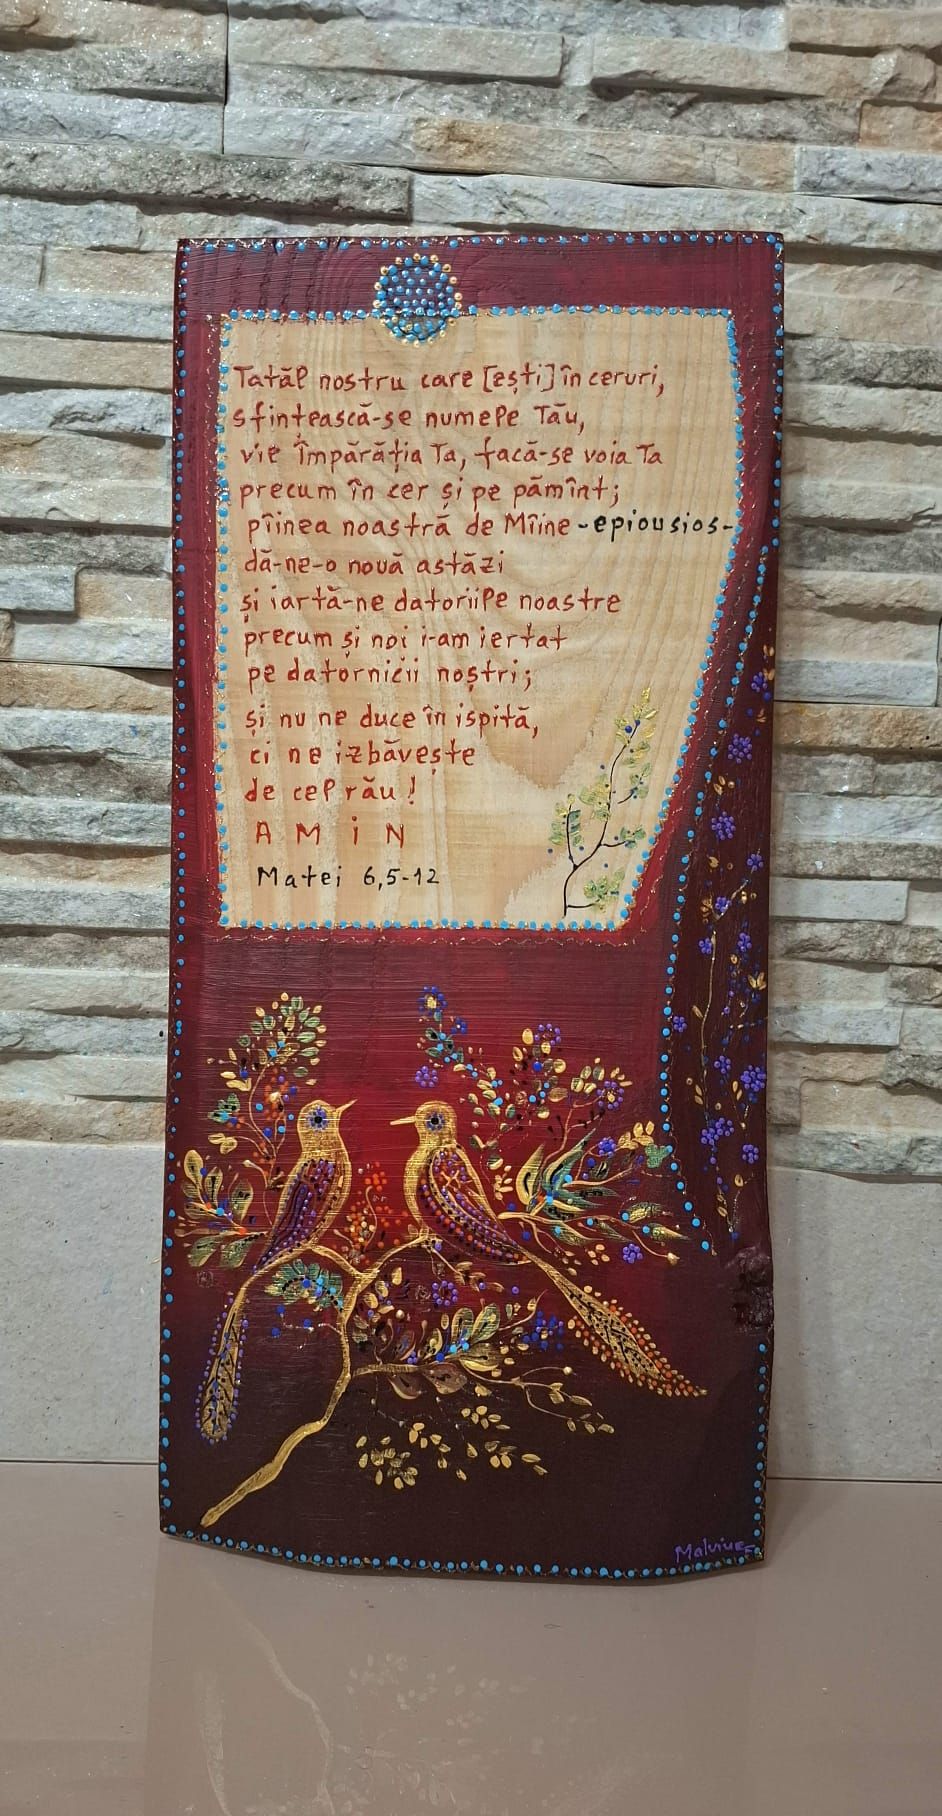 Tatăl nostru care [ești] în ceruri,
sfințească-se numele Tău,
vie Împărăția Ta, facă-se voia Ta
precum în cer și pe pămînt;
pîinea noastră de Mîine -epiousios-
dă-ne-o nouă astăzi
și iartă-ne datoriile noastre
precum și noi i-am iertat
pe datornicii noștri;
și nu ne duce în ispită,
ci ne izbăvește
de cel rău!
AMiN
Matei 6,5-12